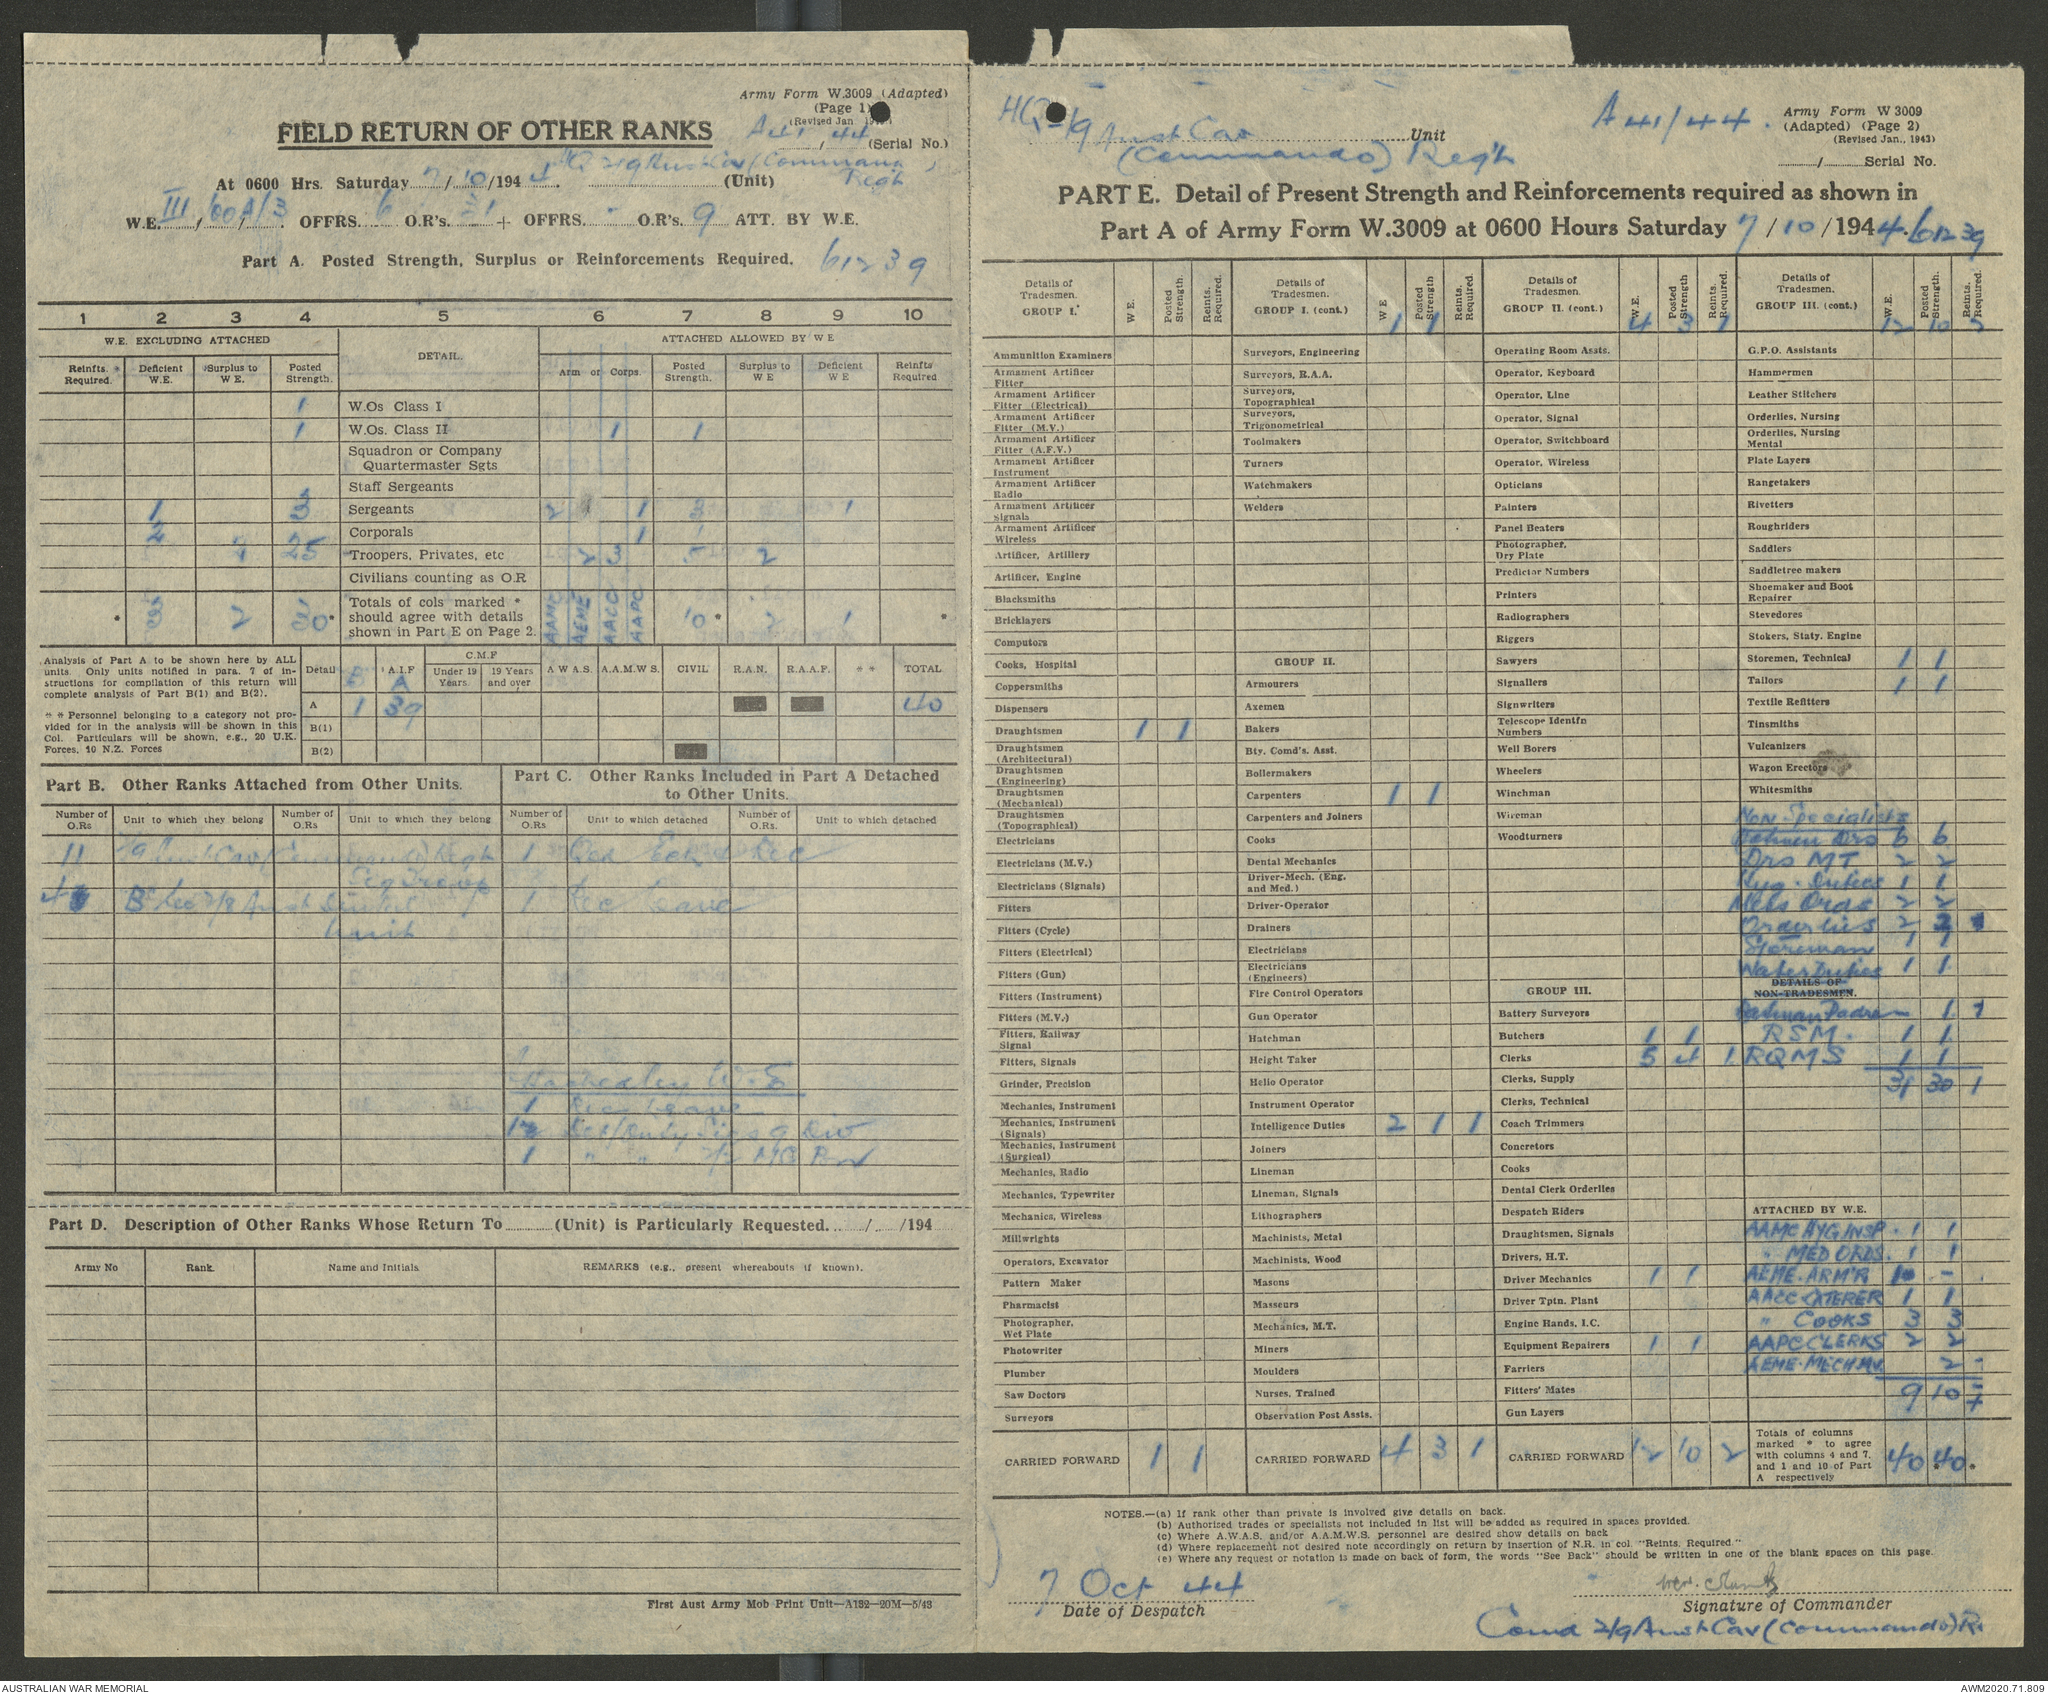 Army Form W.3009 (Adapted)
(Page 1)
(Revised Jan.
FIELD RETURN OF OTHER RANKS
A41/44 (Serial No.)
At 0600 Hrs. Saturday 7/10/1944. HQ 2/9 Aust Cav (Commando) Regt (Unit)
W.E. III/60A/3. OFFRS. 6 O.R's. 31 + OFFRS. - O.R's. 9 ATT. BY W.E.
Part A. Posted Strength, Surplus or Reinforcements Required. 61239
1 2 3 4 5 6 7 8 9 10
W.E. EXCLUDING ATTACHED DETAIL. ATTACHED ALLOWED BY W E
Reinfts. * Required. Deficient W.E. Surplus to W E. Posted Strength. Arm or Corps. Posted Strength. Surplus to W E Deficient W E Reinfts Required
1 W.Os Class I
1 W.Os. Class II 1 1
Squadron or Company Quartermaster Sgts
Staff Sergeants
1 3 Sergeants 2 1 3 1
2 Corporals 1 1
4 25 Troopers, Privates, etc 2 3 5 2
Civilians counting as O.R
* 3 2 30* Totals of cols marked * should agree with details shown in Part E on Page 2. AAMC AEME AACC AAPC 10 * 2 1 *
Analysis of Part A to be shown here by ALL
units. Only units notified in para. 7 of in-
structions for compilation of this return will
complete analysis of Part B(1) and B(2).
* * Personnel belonging to a category not pro-
vided for in the analysis will be shown in this
Col. Particulars will be shown, e.g., 20 U.K.
Forces, 10 N.Z. Forces
Detail A.I.F A C.M.F Under 19 Years. 19 Years and over A W A S. A.A.M.W S. CIVIL R.A.N. R.A.A.F. * * TOTAL
A 1 39 40
B(1)
B(2)
Part B. Other Ranks Attached from Other Units.
Part C. Other Ranks Included in Part A Detached to Other Units.
Number of O.Rs Unit to which they belong Number of O.Rs Unit to which they belong Number of O.Rs Unit to which detached Number of O.Rs. Unit to which detached
11 2/9 Aust Cav (Commando) Regt 1
4 Sec 2/8 Aust Dental Unit 1 Rec Leave
Attached by W.E
1 Rec Leave
1
1 " "
Part D. Description of Other Ranks Whose Return To (Unit) is Particularly Requested. / /194
Army No Rank. Name and Initials REMARKS (e.g., present whereabouts if known).
First Aust Army Mob Print Unit—A132—20M—5/43
HQ 2/9 Aust Cav (Commando) Reg't Unit
A 41/44.
Army Form W 3009
(Adapted) (Page 2)
(Revised Jan., 1943)
/ Serial No.
PART E. Detail of Present Strength and Reinforcements required as shown in
Part A of Army Form W.3009 at 0600 Hours Saturday 7/10/1944. 61239
Details of Tradesmen. GROUP I. W E. Posted Strength. Reints. Required.
Ammunition Examiners
Armament Artificer Fitter
Armament Artificer Fitter (Electrical)
Armament Artificer Fitter (M.V.)
Armament Artificer Fitter (A.F.V.)
Armament Artificer Instrument
Armament Artificer Radio
Armament Artificer Signals
Armament Artificer Wireless
Artificer, Artillery
Artificer, Engine
Blacksmiths
Bricklayers
Computors
Cooks, Hospital
Coppersmiths
Dispensers
Draughtsmen 1 1
Draughtsmen (Architectural)
Draughtsmen (Engineering)
Draughtsmen (Mechanical)
Draughtsmen (Topographical)
Electricians
Electricians (M.V.)
Electricians (Signals)
Fitters
Fitters (Cycle)
Fitters (Electrical)
Fitters (Gun)
Fitters (Instrument)
Fitters (M.V.)
Fitters, Railway Signal
Fitters, Signals
Grinder, Precision
Mechanics, Instrument
Mechanics, Instrument (Signals)
Mechanics, Instrument (Surgical)
Mechanics, Radio
Mechanics, Typewriter
Mechanics, Wireless
Millwrights
Operators, Excavator
Pattern Maker
Pharmacist
Photographer, Wet Plate
Photowriter
Plumber
Saw Doctors
Surveyors
CARRIED FORWARD 1 1
Details of Tradesmen. GROUP I. (cont.) W E 1 Posted Strength 1 Reints. Required.
Surveyors, Engineering
Surveyors, R.A.A.
Surveyors, Topographical
Surveyors, Trigonometrical
Toolmakers
Turners
Watchmakers
Welders
GROUP II.
Armourers
Axemen
Bakers
Bty. Comd's. Asst.
Boilermakers
Carpenters 1 1
Carpenters and Joiners
Cooks
Dental Mechanics
Driver-Mech. (Eng. and Med.)
Driver-Operator
Drainers
Electricians
Electricians (Engineers)
Fire Control Operators
Gun Operator
Hatchman
Height Taker
Helio Operator
Instrument Operator
Intelligence Duties 2 1 1
Joiners
Lineman
Lineman, Signals
Lithographers
Machinists, Metal
Machinists, Wood
Masons
Masseurs
Mechanics, M.T.
Miners
Moulders
Nurses, Trained
Observation Post Assts.
CARRIED FORWARD 4 3 1
Details of Tradesmen. GROUP II. (cont.) W.E. 4 Posted Strength 3 Reints. Required. 1
Operating Room Assts.
Operator, Keyboard
Operator, Line
Operator, Signal
Operator, Switchboard
Operator, Wireless
Opticians
Painters
Panel Beaters
Photographer, Dry Plate
Predictor Numbers
Printers
Radiographers
Riggers
Sawyers
Signallers
Signwriters
Telescope Identfn Numbers
Well Borers
Wheelers
Winchman
Wireman
Woodturners
GROUP III.
Battery Surveyors
Butchers 1 1
Clerks 5 4 1
Clerks, Supply
Clerks, Technical
Coach Trimmers
Concretors
Cooks
Dental Clerk Orderlies
Despatch Riders
Draughtsmen, Signals
Drivers, H.T.
Driver Mechanics 1 1
Driver Tptn. Plant
Engine Hands, I.C.
Equipment Repairers 1 1
Farriers
Fitters' Mates
Gun Layers
CARRIED FORWARD 12 10 2
Details of Tradesmen. GROUP III. (cont.) W.E. 12 Posted Strength. 10 Reints. Required. 2
G.P.O. Assistants
Hammermen
Leather Stitchers
Orderlies, Nursing
Orderlies, Nursing Mental
Plate Layers
Rangetakers
Rivetters
Roughriders
Saddlers
Saddletree makers
Shoemaker and Boot Repairer
Stevedores
Stokers, Staty. Engine
Storemen, Technical 1 1
Tailors 1 1
Textile Refitters
Tinsmiths
Vulcanizers
Wagon Erectors
Whitesmiths
Non Specialists
Batmen Drs 6 6
Drs MT 2 2
Hyg. Duties 1 1
Mess Ords 2 2
Orderlies 2
Storeman 1 1
Water Duties 1 1
DETAILS OF NON-TRADESMEN.
Batman Padre — 1
RSM. 1 1
RQMS 1 1
31 30 1
ATTACHED BY W.E.
AAMC HYG INSP. 1 1
" MED ORDS. 1 1
AEME-ARM'R 1 -
AACC CATERER 1 1
" COOKS 3 3
AAPC CLERKS 2 2
AEME-MECH MV 2 -
9 10
Totals of columns marked * to agree with columns 4 and 7, and 1 and 10 of Part A respectively 40 40 * *
NOTES.—(a) If rank other than private is involved give details on back.
(b) Authorised trades or specialists not included in list will be added as required in spaces provided.
(c) Where A.W.A.S. and/or A.A.M.W.S. personnel are desired show details on back
(d) Where replacement not desired note accordingly on return by insertion of N.R. in col. "Reints. Required."
(e) Where any request or notation is made on back of form, the words "See Back" should be written in one of the blank spaces on this page.
7 Oct 44
Date of Despatch
Signature of Commander
Comd 2/9 Aust Cav (Commando) R.
AUSTRALIAN WAR MEMORIAL
AWM2020.71.809